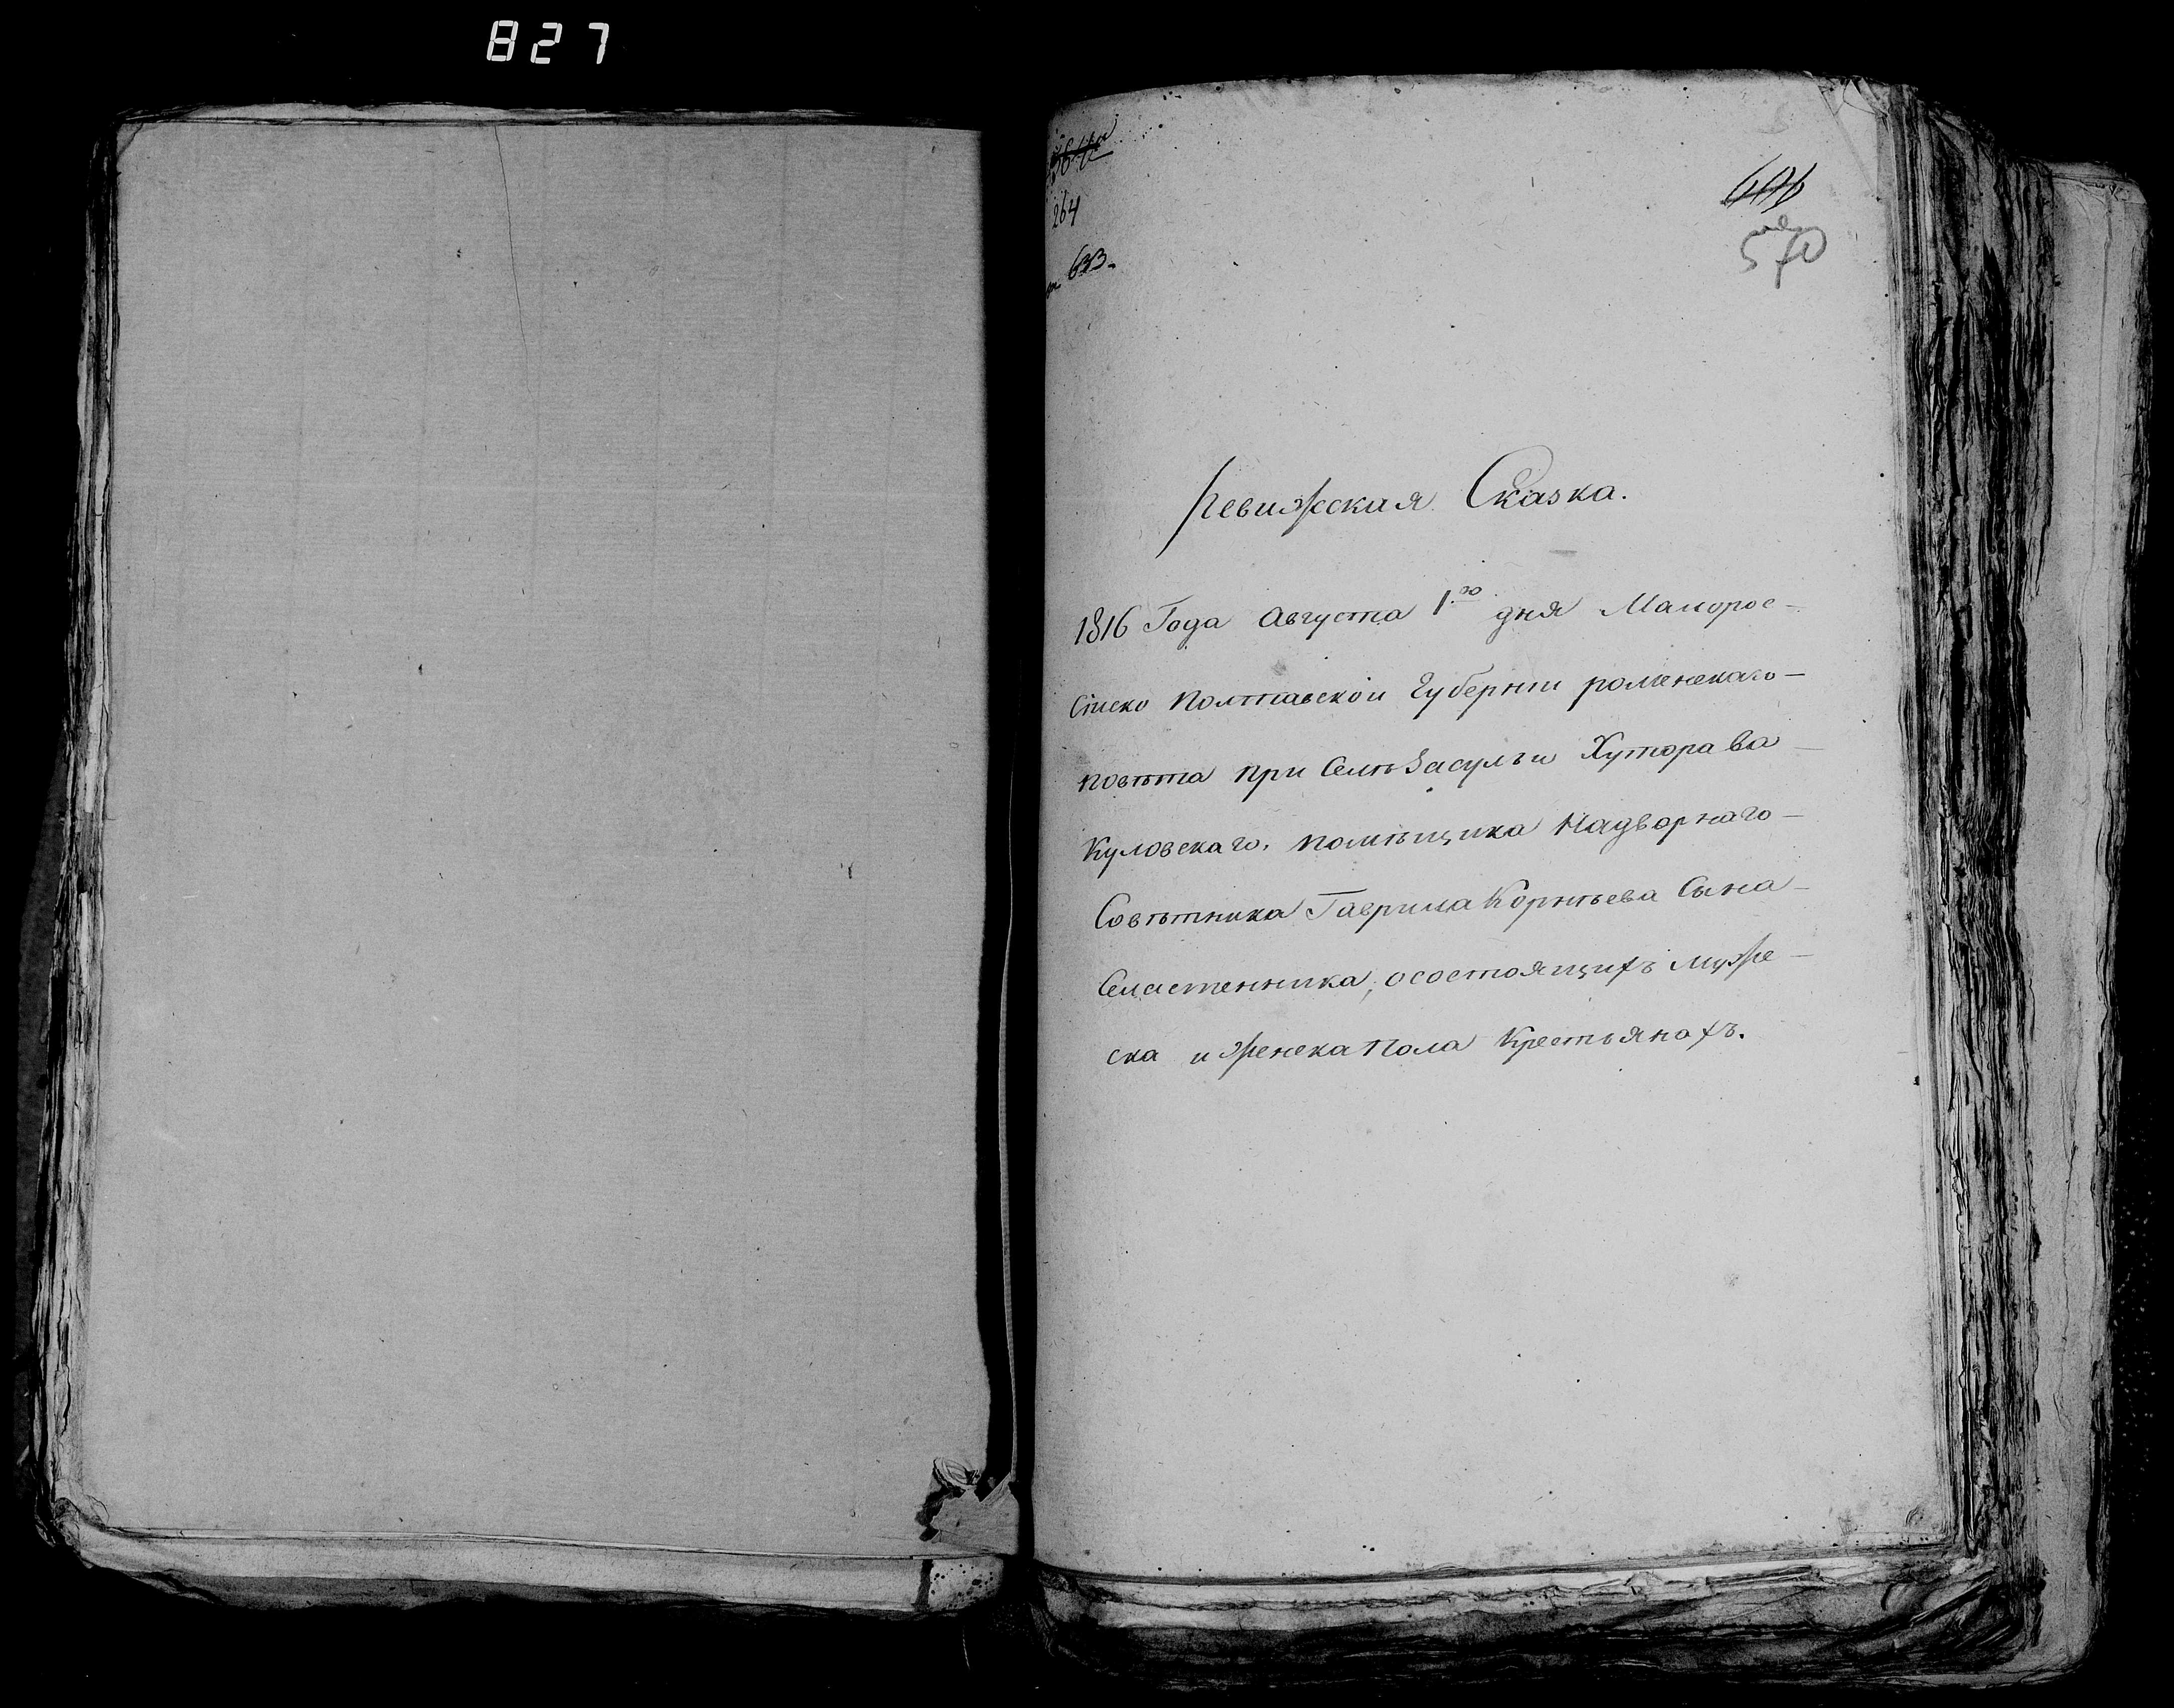 827
264
633.
570
Ревижская Сказка.
1816 Года Августа 1го дня Малорос-
сійско Полтавской Губернии роменскаго-
повѣта при Селѣ Засульи Хутора Ва-
Куловскаго, помѣщика Надворнаго-
Совѣтника Гаврила Корнѣева Сына-
Сластенника, о состоящихъ муже-
ска и женска пола Крестьянахъ.